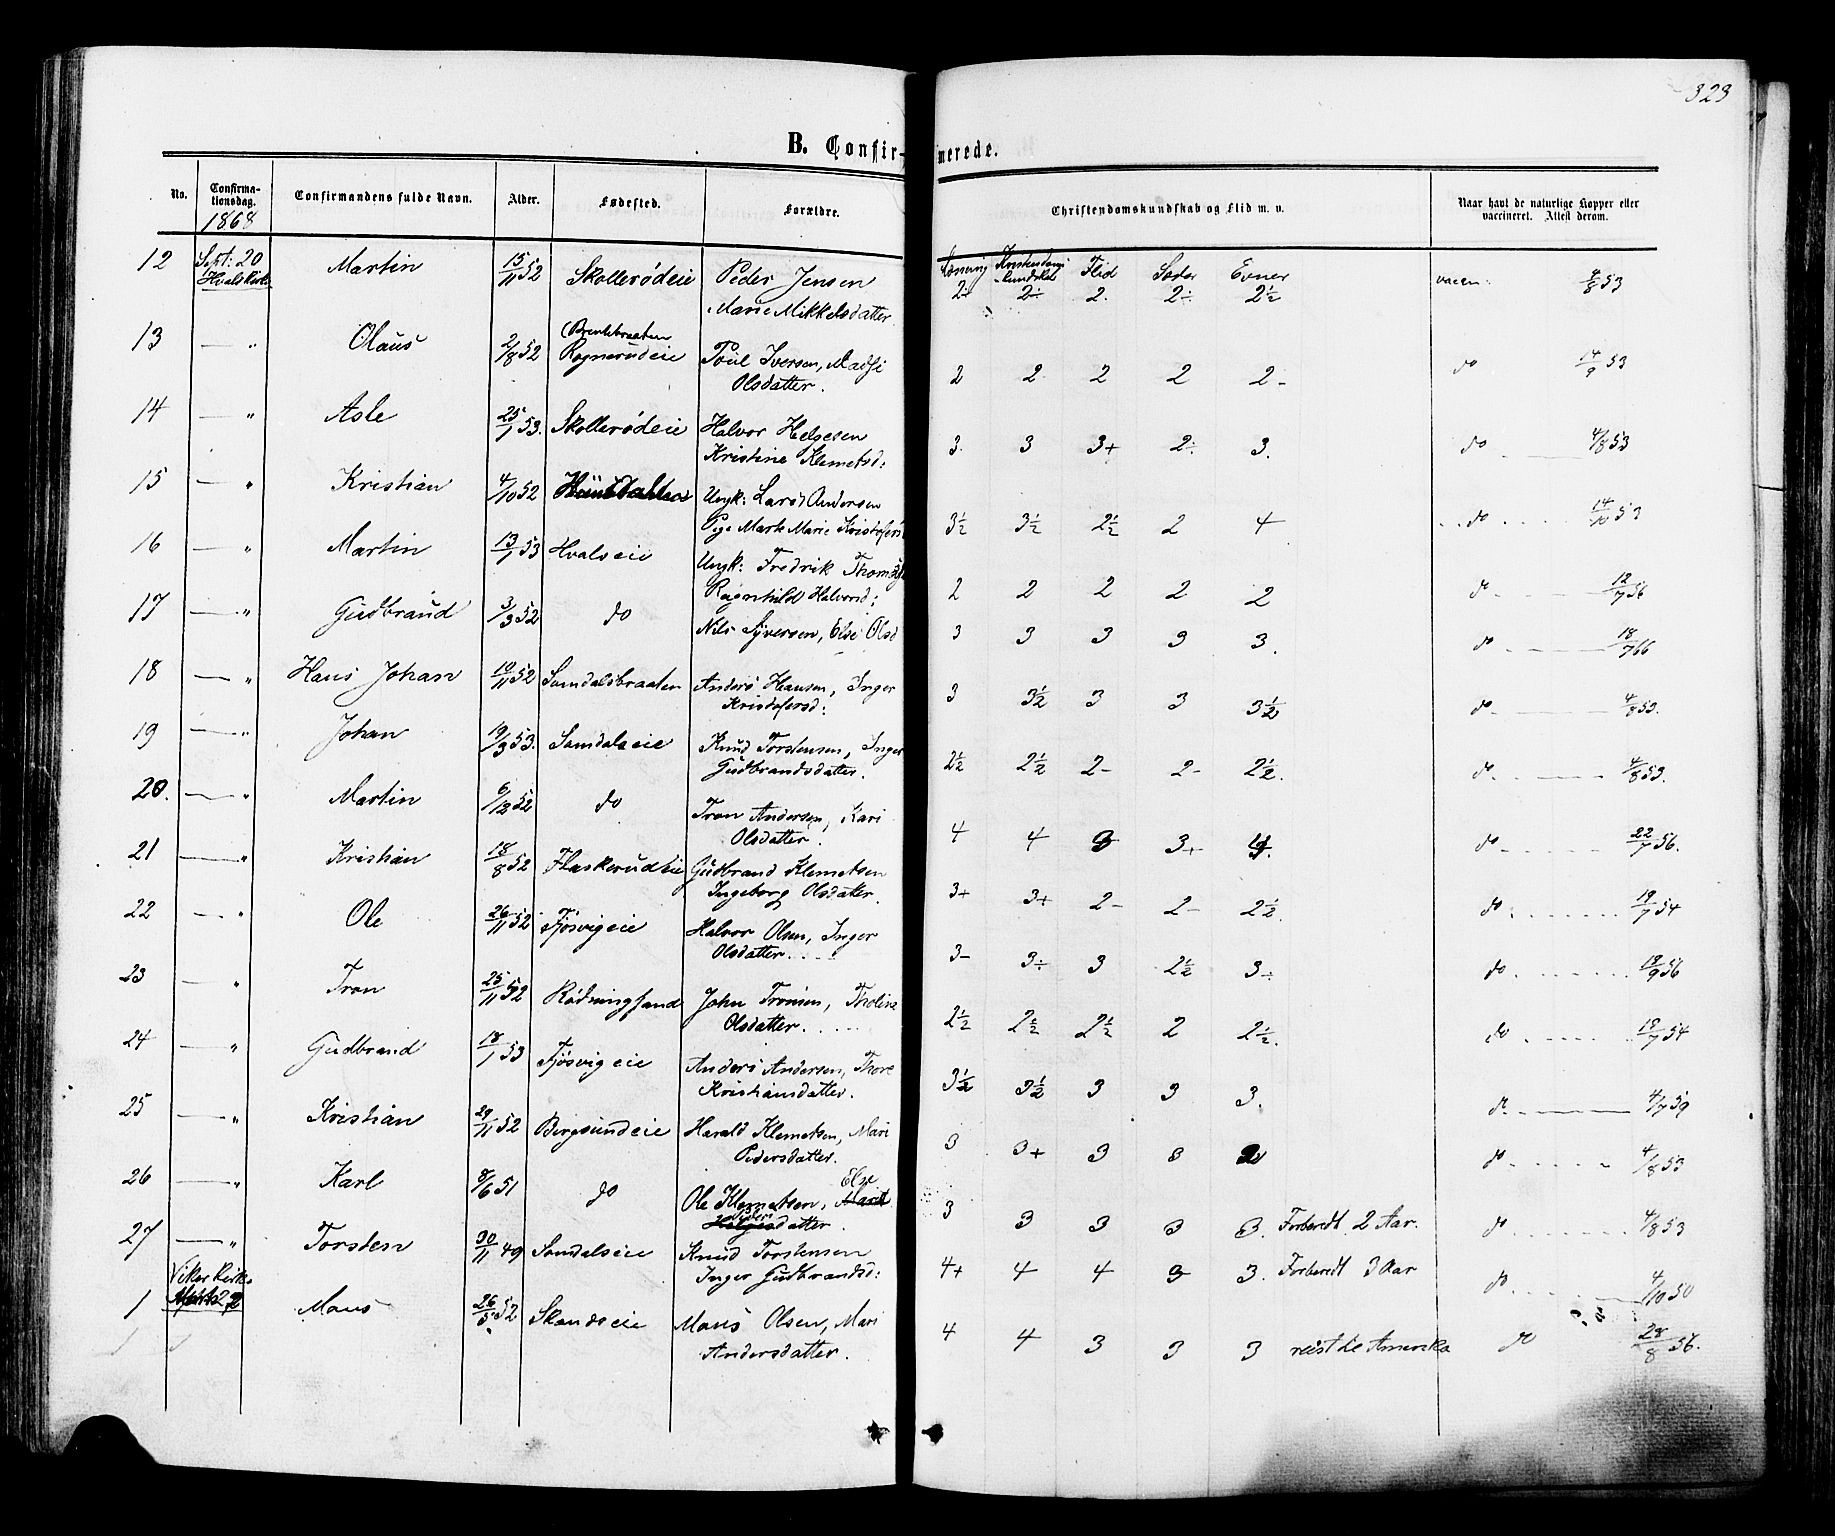 323
B. Confirmerede.
No. Confirmationsdag. Confirmandens fulde Navn. Alder. Fødested. Forældre. Christendomskundskab og Flid m. v. Naar havt de naturlige Kopper eller vaccineret. Attest derom.
1868
Læsning Kristendomskundskab Flid Sæder Evner
12 Sept: 20 Hvals Kirke Martin 15/11 52 Skollerødeie Peder Jensen 2÷ 2÷ 2. 2÷ 2½ vaccn: 4/8 53
Marie Mikkelsdatter
13 — " Olaus 2/8 52 (Brentebraaten Rognerudeie Poul Iversen, Madsi 2 2 2 2 2- do 14/9 53
Olsdatter.
14 — " Asle 25/1 53. Skollerødeie Halvor Helgesen 3. 3 3+ 2÷ 3. do 4/8 53
Kristine Klemetsd:
15 — " Kristian 4/10 52 Ungk: Lars Andersen 3½ 3½ 2½ 2 4 do 14/10 53
Pige Marte Marie Kristofers
16 — " Martin 13/1 53 Hvalseie Ungk: Fredrik 2 2 2 2 2 do 12/7 56
Ragnhild Halvorsd:
17 — " Gudbrand 3/3 52 do Nils Syversen, Else Olsd 3 3 3 3 3. do 18/7 66
18 — " Hans Johan 19/11 52 Somdalsbraaten Anders Hansen, Inger 3 3½ 3 3 3½ do 4/8 53.
Kristofersd:
19 — " Johan 19/3 53. Somdalseie Knud Torstensen, Inger 2½ 2½ 2- 2- 2½. do 4/8 53.
Gudbrandsdatter.
20. — " Martin 6/12 52 do Tron Andersen, Kari 4 4 3 3+ 4. do 22/7 56.
Olsdatter.
21 — " Kristian 18/8 52 Flaskerudeie Gudbrand Klemetsen 3+ 3+ 2- 2- 2½. do 19/7 54
Ingeborg Olsdatter.
22 — " Ole 26/11 52 Fjösvigeie Halvor Olsen, Inger 3- 3÷ 3 2½ 3÷ do 19/9 56
Olsdatter.
23 " Tron 25/11 52 John Tronsen, Tholina 2½ 2½ 2½ 2 2½. do 19/7 54
Olsdatter.
24 — " Gudbrand 18/1 53 Fjösvigeie Anders Andersen, Thore 3½ 3½ 3 3 3. do 4/7 59
Kristiansdatter.
25 — " Kristian 29/11 52 Bergsundeie Harald Klemetsen, Mari 3 3+ 3 3 2 do 4/8 53
Pedersdatter.
26 — " Karl 8/6 51 do Ole Klemetsen, Else 3 3 3 3 3. Forberedt 2 Aar. do 4/8 53
datter.
27 — " Torsten 30/11 49 Somdalseie Knud Torstensen 4+ 4 4 3 3. Forberedt 3 Aar do 4/10 50
Inger Gudbrandsd:
1 Viker Kirke Maus 26/5 52 Skandseie Maus Olsen, Mari 4 4 3 3 3 reist te Amerika do 28/8 56.
Andersdatter.